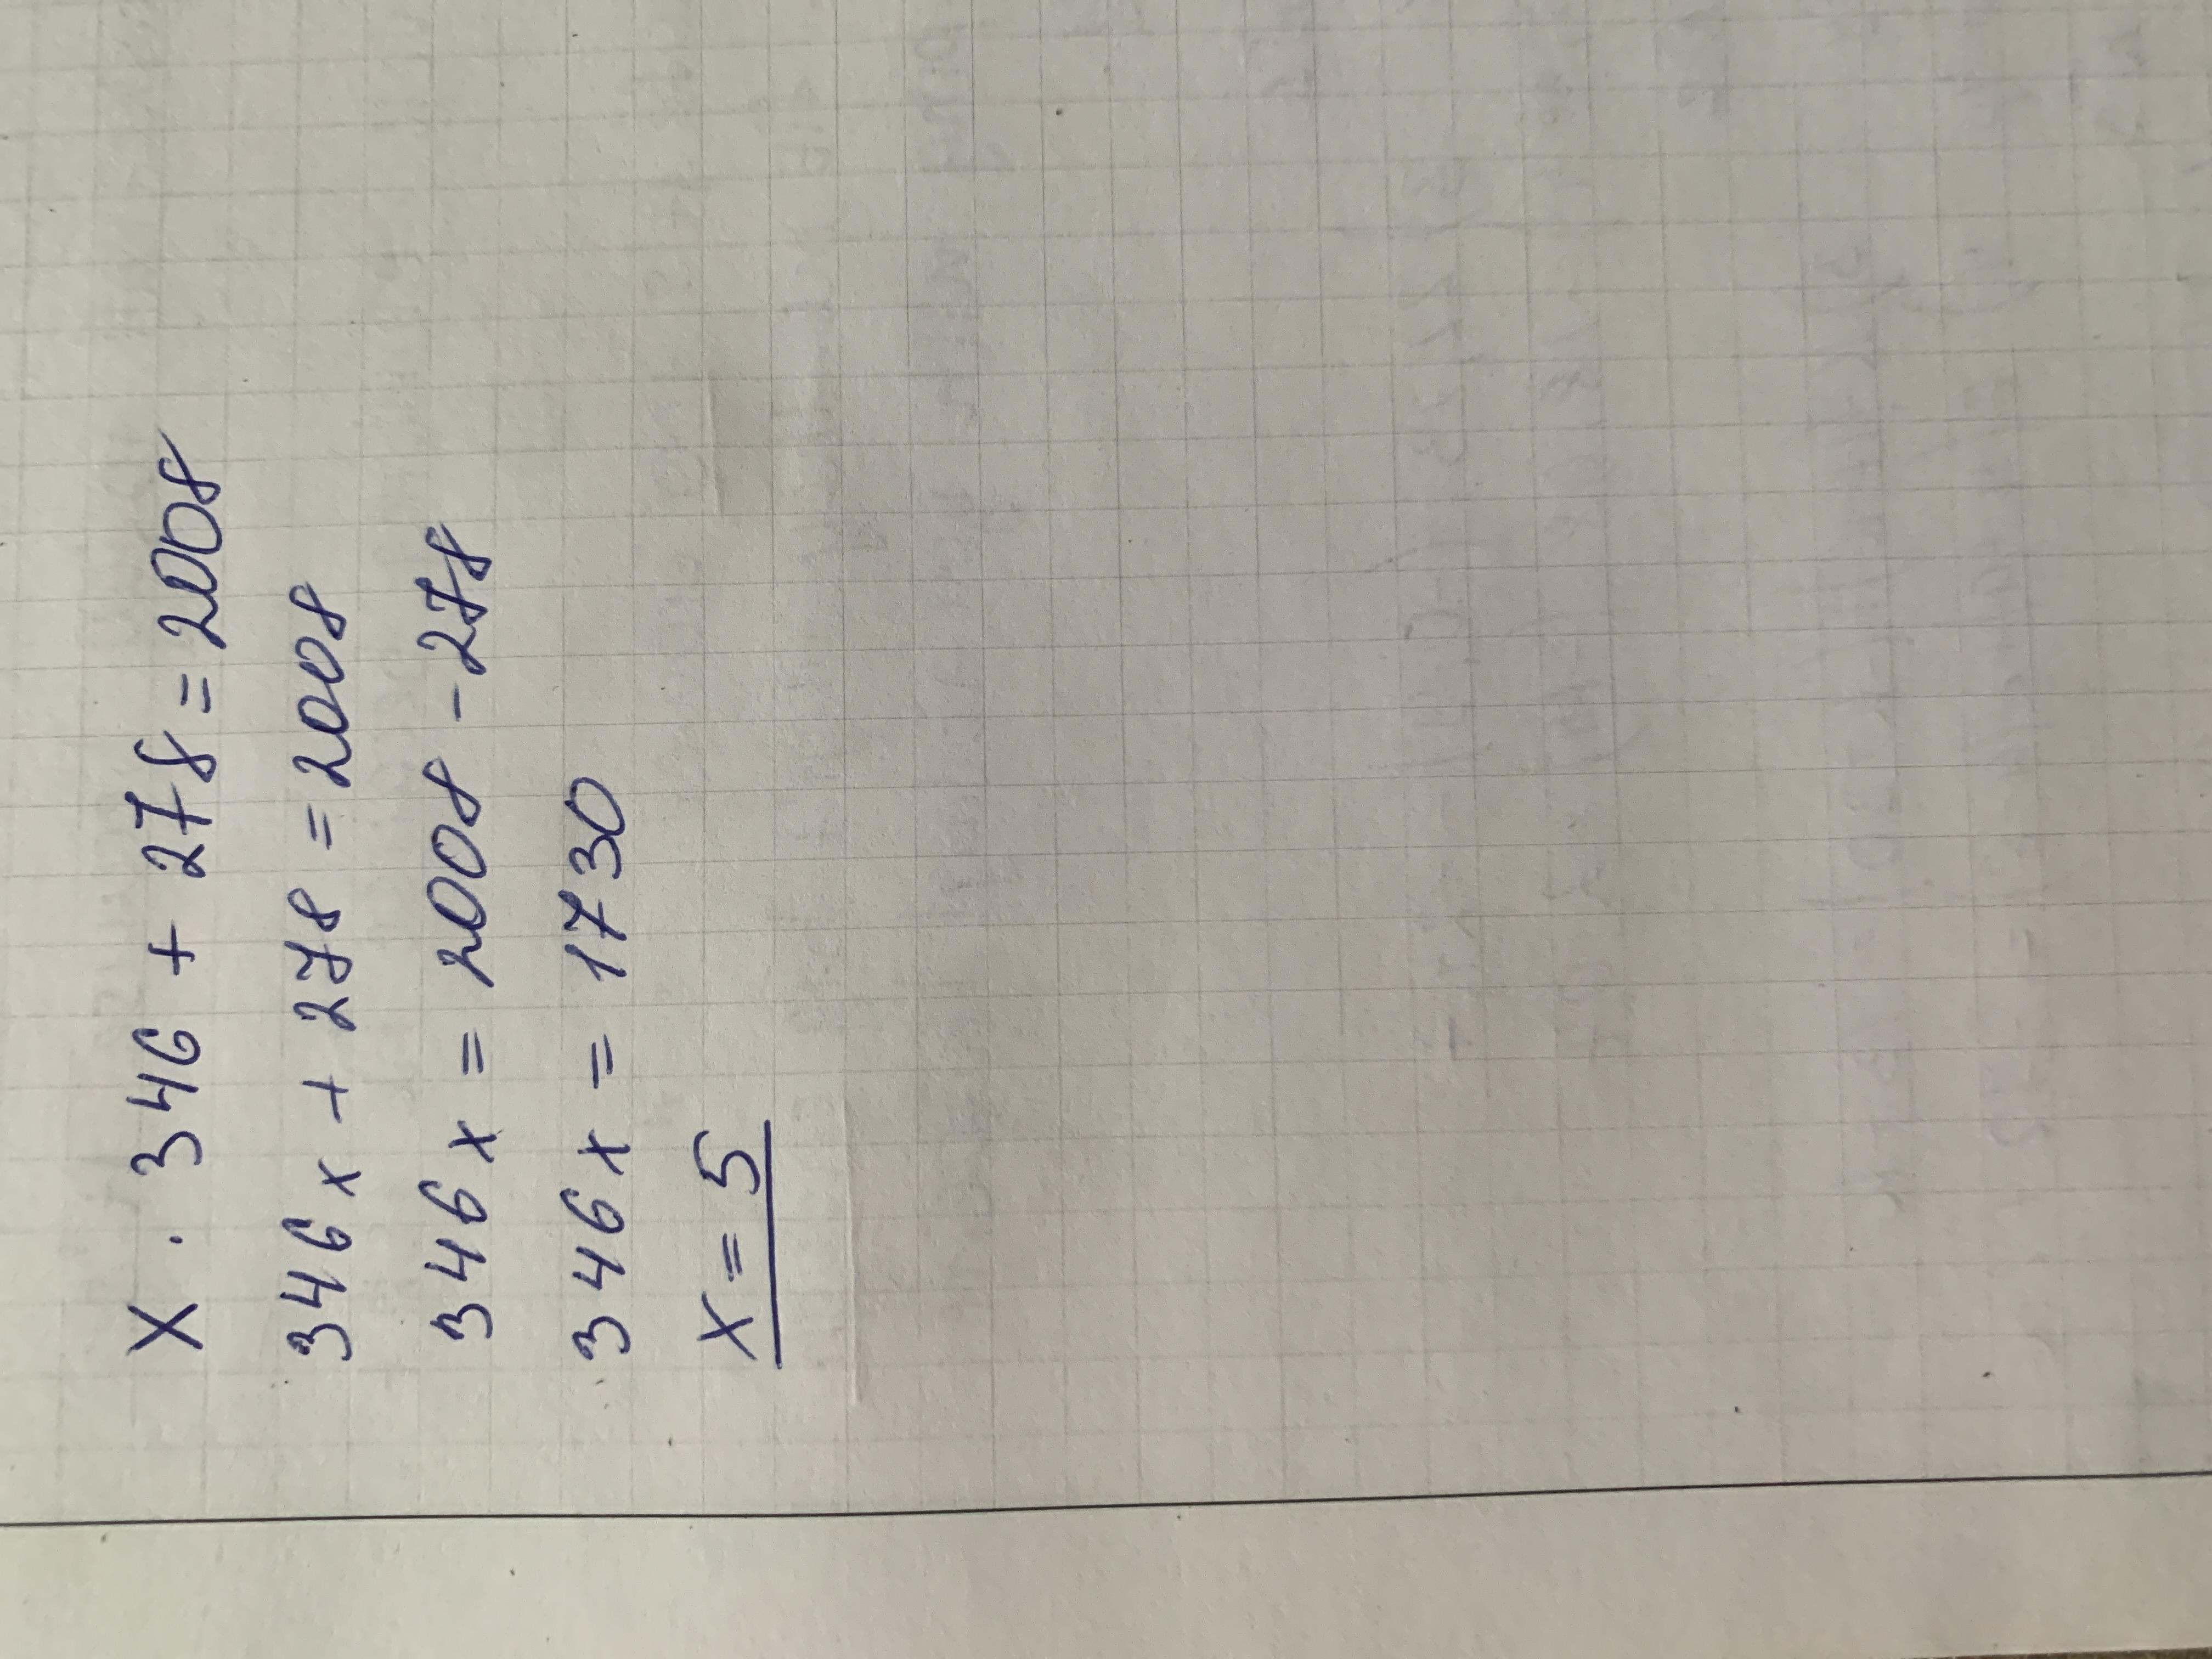 x · 346 + 278 = 2008
346x + 278 = 2008
346x = 2008 - 278
346x = 1730
x = 5